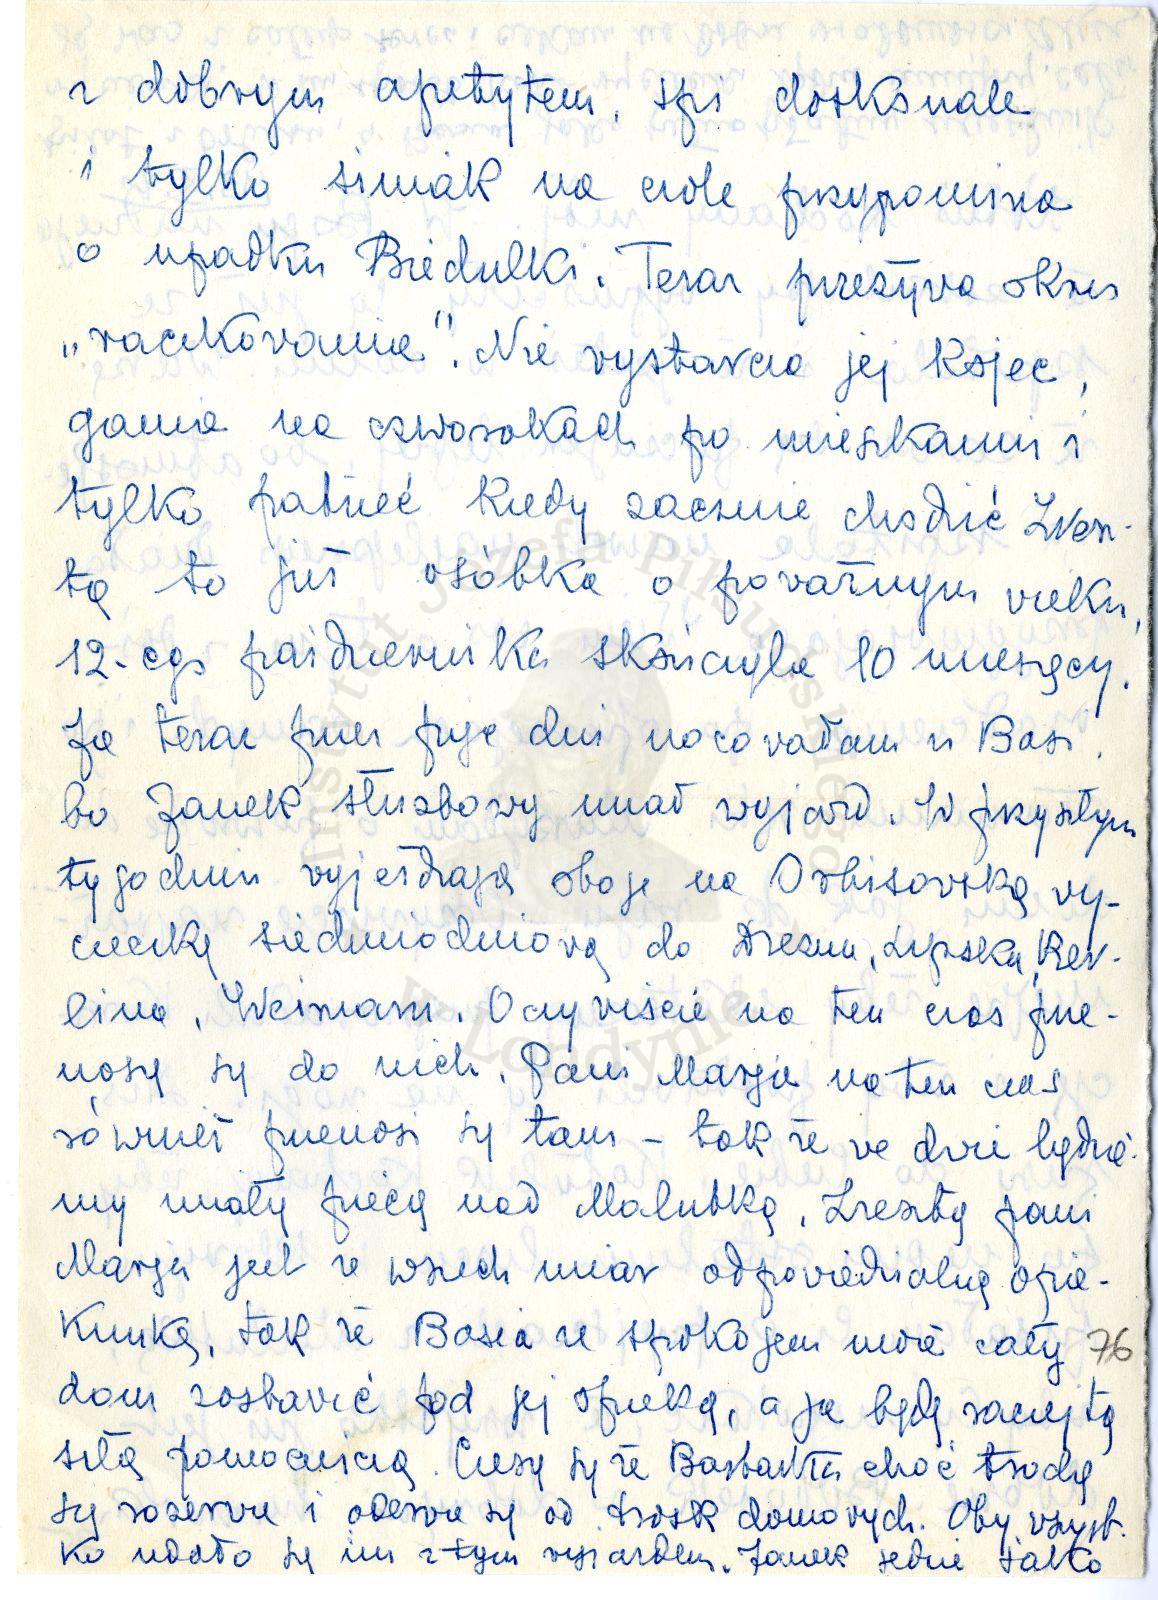 z dobrym apetytem, śpi doskonale
i tylko siniak na czole przypomina
o upadku Biedulki. Teraz przeżywa okres
„raczkowania”. Nie wystarcza jej kojec,
gania na czworokach po mieszkaniu i
tylko patrzeć kiedy zacznie chodzić. Zresz-
tą to już osóbka o poważnym wieku,
12-ego października skończyła 10 miesięcy.
Ja teraz przez dni nocowałam u Basi
bo Janek służbowy miał wyjazd. W przyszłym
tygodniu wyjeżdżają oboje na Orbisowską wy-
cieczkę siedmiodniową do Drezna, Lipska, Ber-
lina, Weimaru. Oczywiście na ten czas prze-
noszę się do nich. Pani Marja na ten czas
również przenosi się tam – tak że we dwie będzie-
my miały pieczę nad Malutką. Zresztą pani
Marja jest ze wszech miar odpowiedzialną opie-
kunką, tak że Basia ze spokojem może cały
76
dom zostawić pod jej opieką, a ja będę raczej tą
siłą pomocniczą. Cieszę się że Basiatka choć trochę
się rozerwie i oderwie się od trosk domowych. Oby wszyst-
ko udało się im z tym wyjazdem. Janek jedzie jako
Instytut Józefa Piłsudskiego
w Londynie